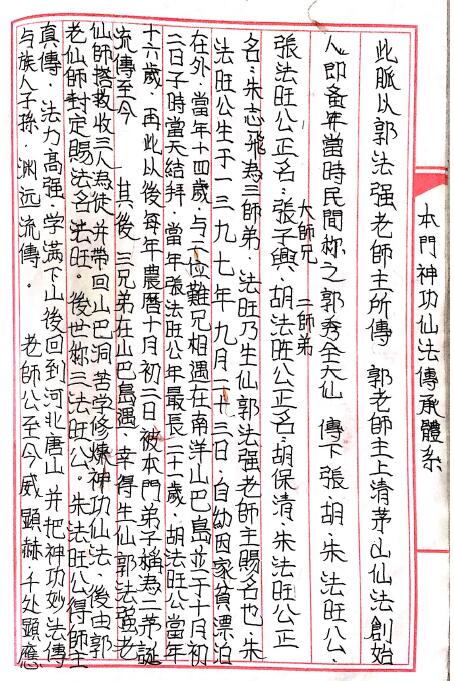 本門神功仙法傳承體系
此脈以郭法强老師主所傳 郭老師主上清茅山仙法創始
人即 當時民間称之郭秀全大仙 傳下張.胡.朱法旺公.
大師兄 二師弟
張法旺公正名:張子興.胡法旺公正名:胡保清.朱法旺公正
名:朱志飛為三師弟.法旺乃生仙郭法强老師主賜名也.朱
法旺公生于一三九七年九月二十三日.自幼因家貧漂泊
在外.當年十四歲.与二位難兄相遇在南洋山巴島並于十月初
二日子時當天結拜.當年張法旺公年最長二十歲.胡法旺公當年
十六歲.再此以後每年農曆十月初二日被本門弟子稱為二茅誕
流傳至今 其後 三兄弟在山巴島遇 幸得生仙郭法强老
仙師搭救收三人為徒并帶回山巴洞苦学修煉神功仙法.後由郭
老仙師封定賜法名法旺.後世称三法旺公.朱法旺公得師主
真傳.法力高强.学满下山後回到河北唐山 并把神功妙法傳
与族人子孫.渊远流傳。 老師公至今威顕赫.千处顕應